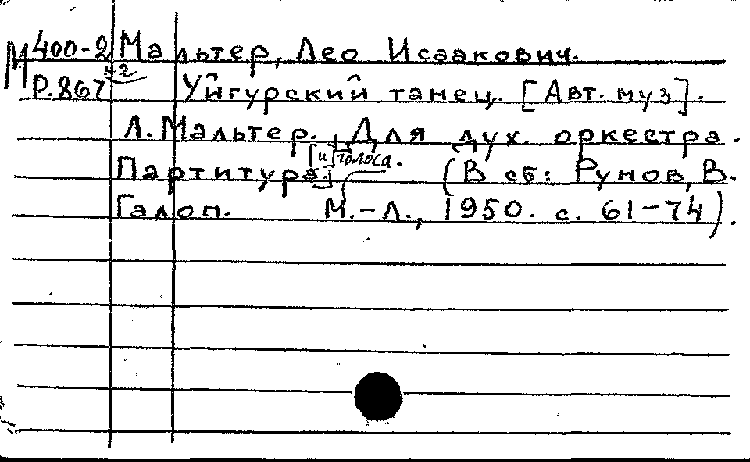 М 400-2 Мальтер, Лео Исаакович.
Р.867 Уйгурский танец. [Авт. муз].
Л. Мальтер. Для дух. оркестра.
[и голоса.
Партитура.] (В сб: Рунов, В.
Галоп. М.-Л., 1950. с. 61-74).